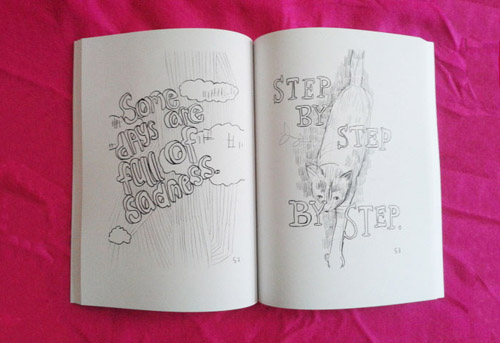 Some
days are
full of
sadness.
STEP
BY
STEP
BY STEP.